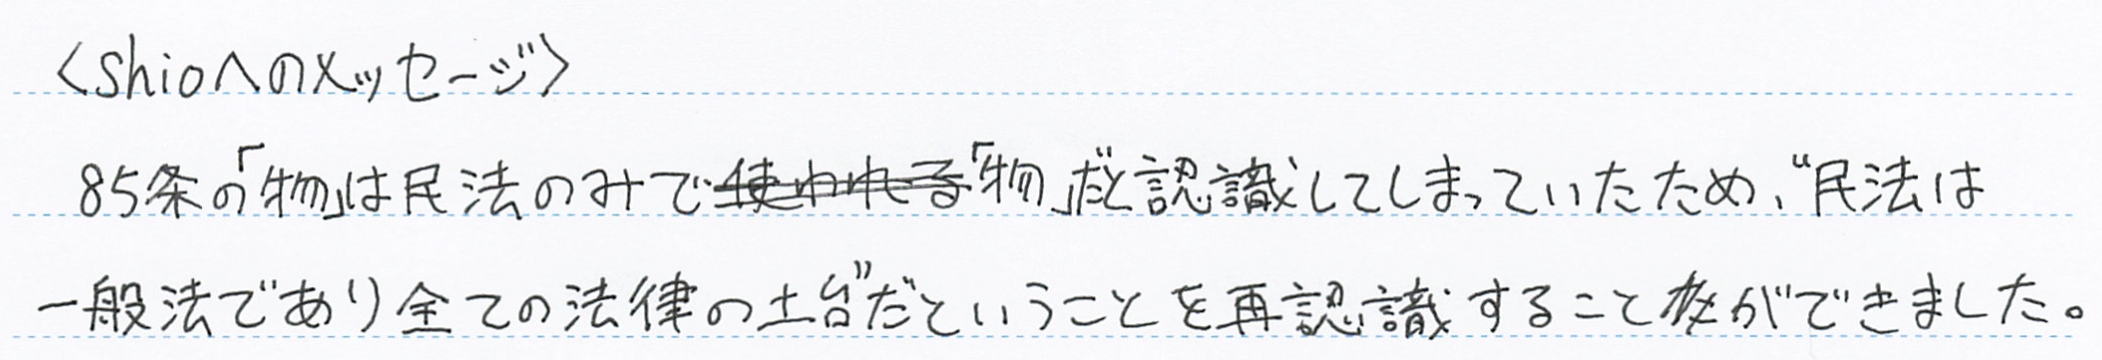 〈shioへのメッセージ〉
85条の「物」は民法のみで使われる「物」だと認識してしまっていたため、“民法は
一般法であり全ての法律の土台”だということを再認識することができました。